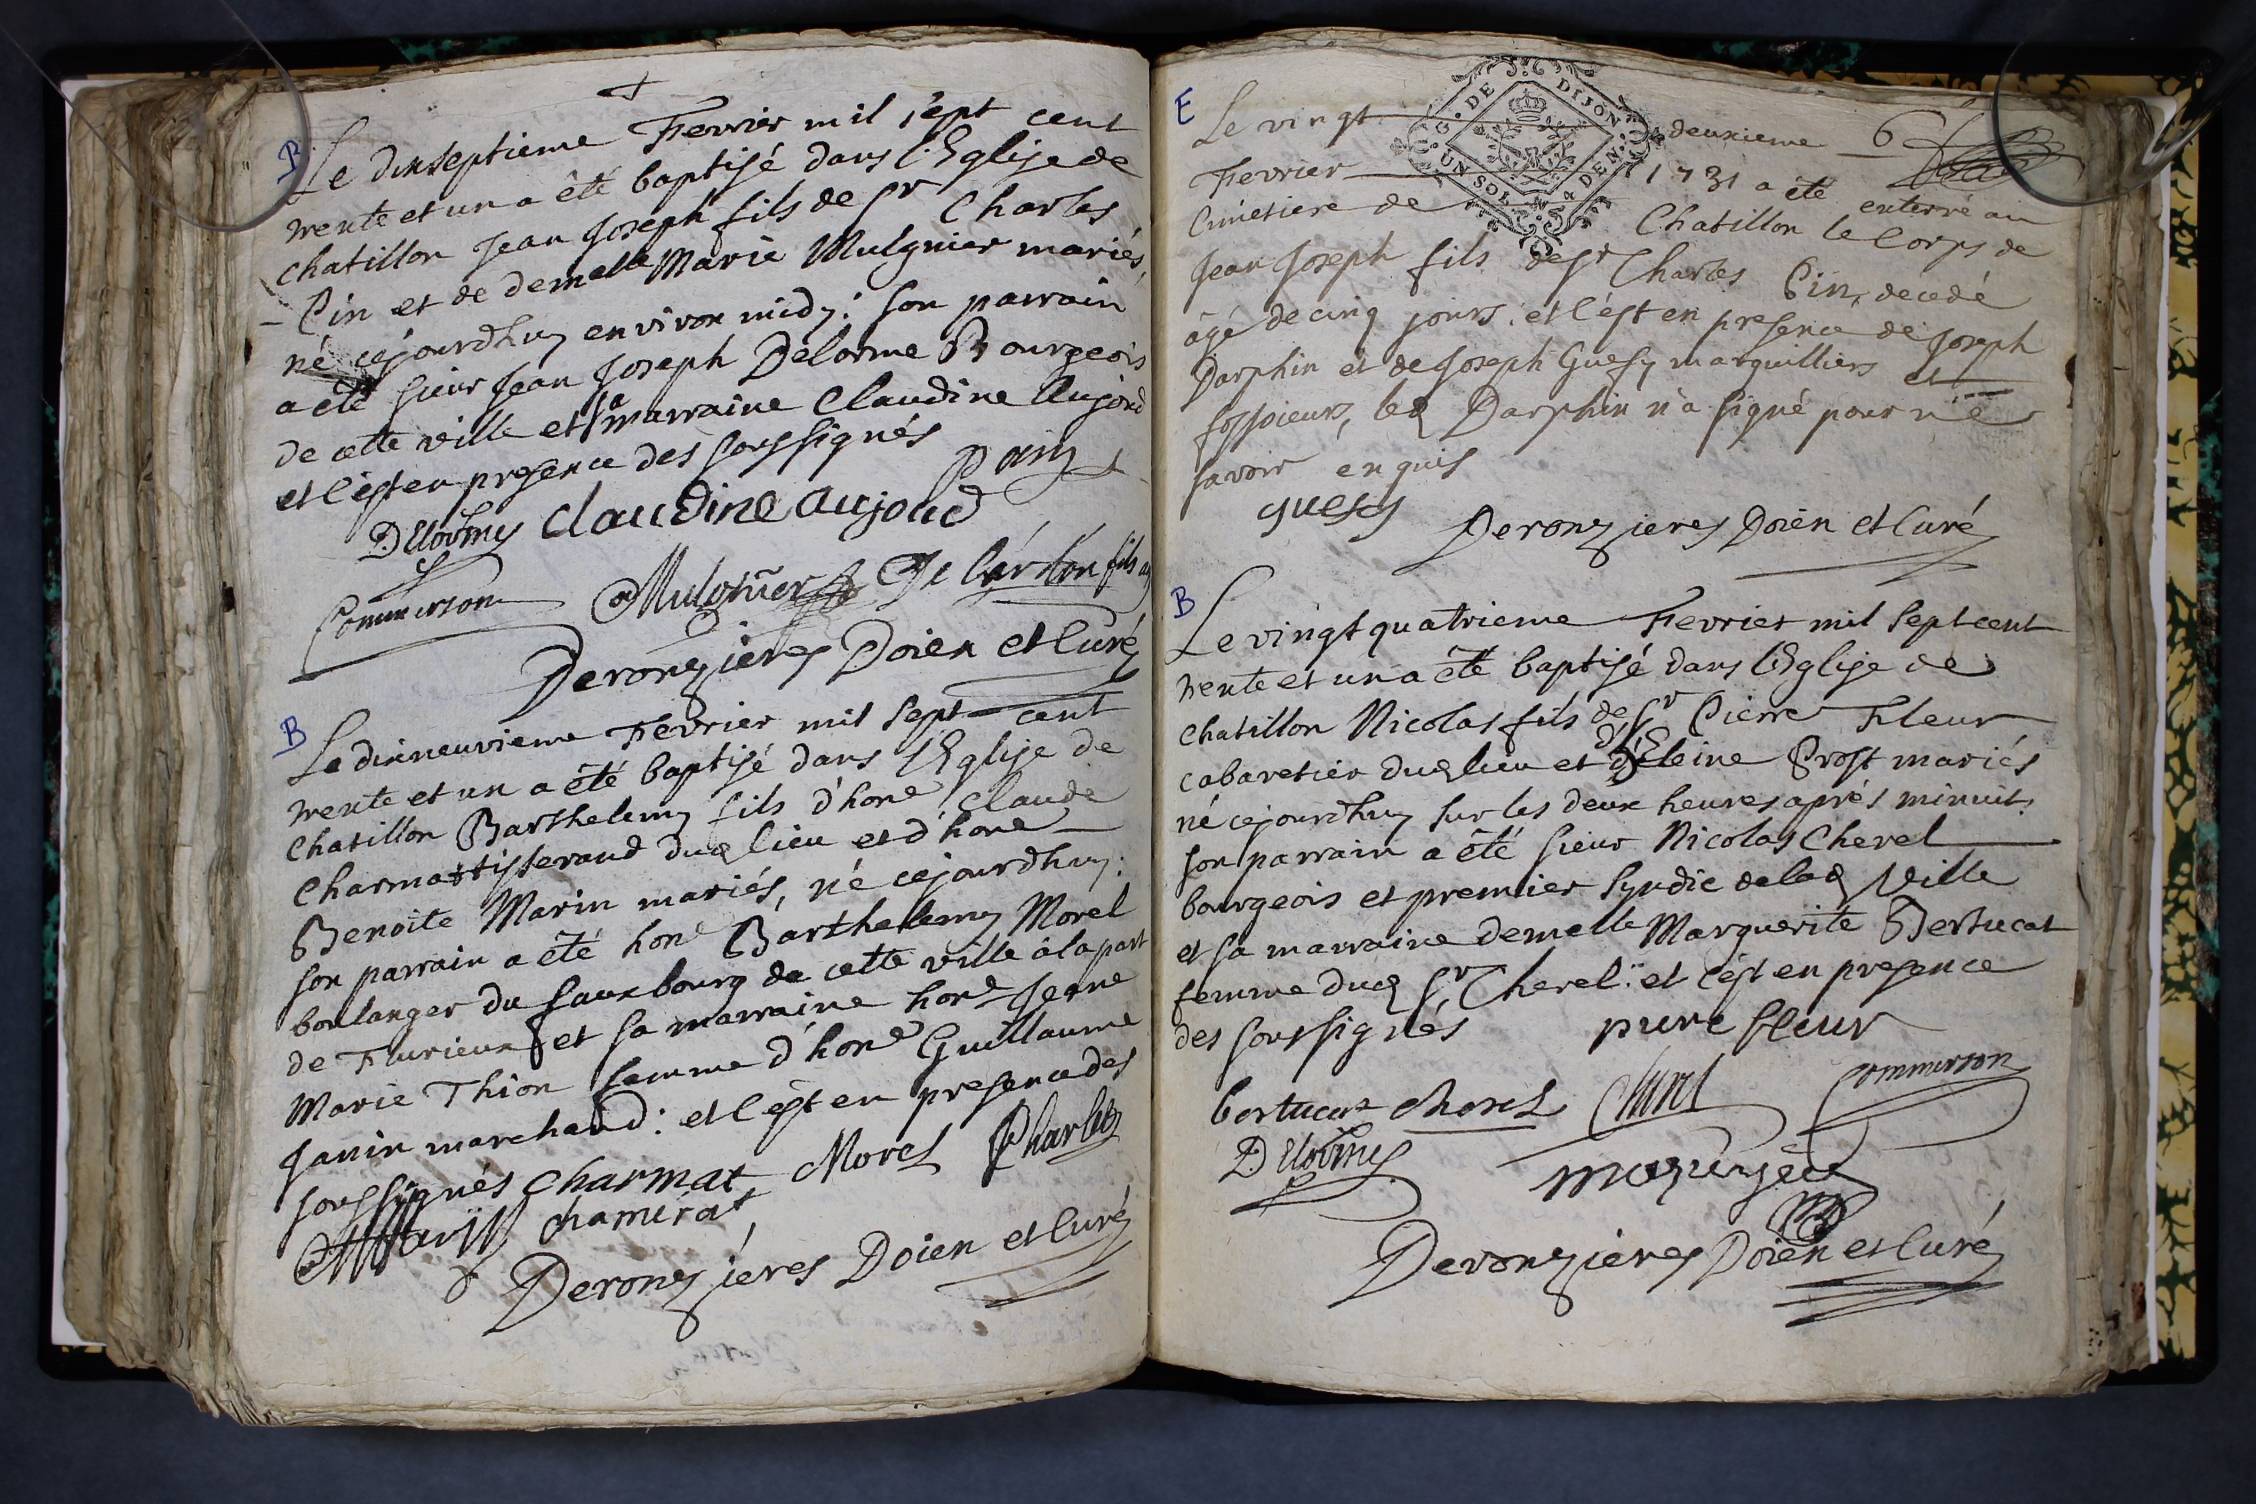 B
Le dixseptieme Fevrier mil sept cent
trente et un a été baptisé dans l'Eglise de
chatillon Jean Joseph fils de Sr Charles
Pin et de demelle Marie Mulgnier mariés,
né cejourdhuy environ midy: son parrain
a été sieur Jean Joseph Delorme Bourgeois
de cette ville et sa marraine Claudine Aujoud
et c'est en presence des soussignés
Pain
Delorme Claudine aujoud
Commerson Mulgnier fils
Deronzieres Doien et Curé
B
Le dixneuvieme Fevrier mil sept cent
trente et un a été baptisé dans l'Eglise de
chatillon Barthelemy fils d'hone Claude
Charmat tisserand dud lieu et d'hone
Benoite Marin mariés, né cejourdhuy:
son parrain a été hone Barthelemy Morel
boulanger du fauxbourg de cette ville à la part
de Flurieux et sa marraine hone Jeanne
Marie Thion femme d'hone Guillaume
Janin marchand: et c'est en presence des
soussignés Charmat Morel Charles
chamerat
Deronzieres Doien et Curé
E
G. DE DIJON
UN SOL 4 DEN.
Le vingt deuxieme 6
Fevrier 1731 a été enterré au
Cimetiere de Chatillon le Corps de
Jean Joseph fils de Sr Charles Pin, decedé
âgé de cinq jours: et c'est en presence de Joseph
Darphin et de Joseph Guesy marguilliers et
fossoieurs, led Darphin n'a signé pour ne
savoir enquis
guesy
Deronzieres Doien et Curé
B
Le vingt quatrieme Fevrier mil sept cent
trente et un a été baptisé dans l'Eglise de
chatillon Nicolas fils de Sr Pierre Fleur
cabaretier dud lieu et d'Eleine Prost mariés
né cejourdhuy sur les deux heures aprés minuit.
son parrain a été sieur Nicolas Cherel
bourgeois et premier Syndic de lad Ville
et sa marraine demelle Marguerite Bertucat
femme dud Sr Cherel: et c'est en presence
des soussignés piere fleur
bertucat cherel Cherel Commerson
Delorme
Deronzieres Doien et Curé